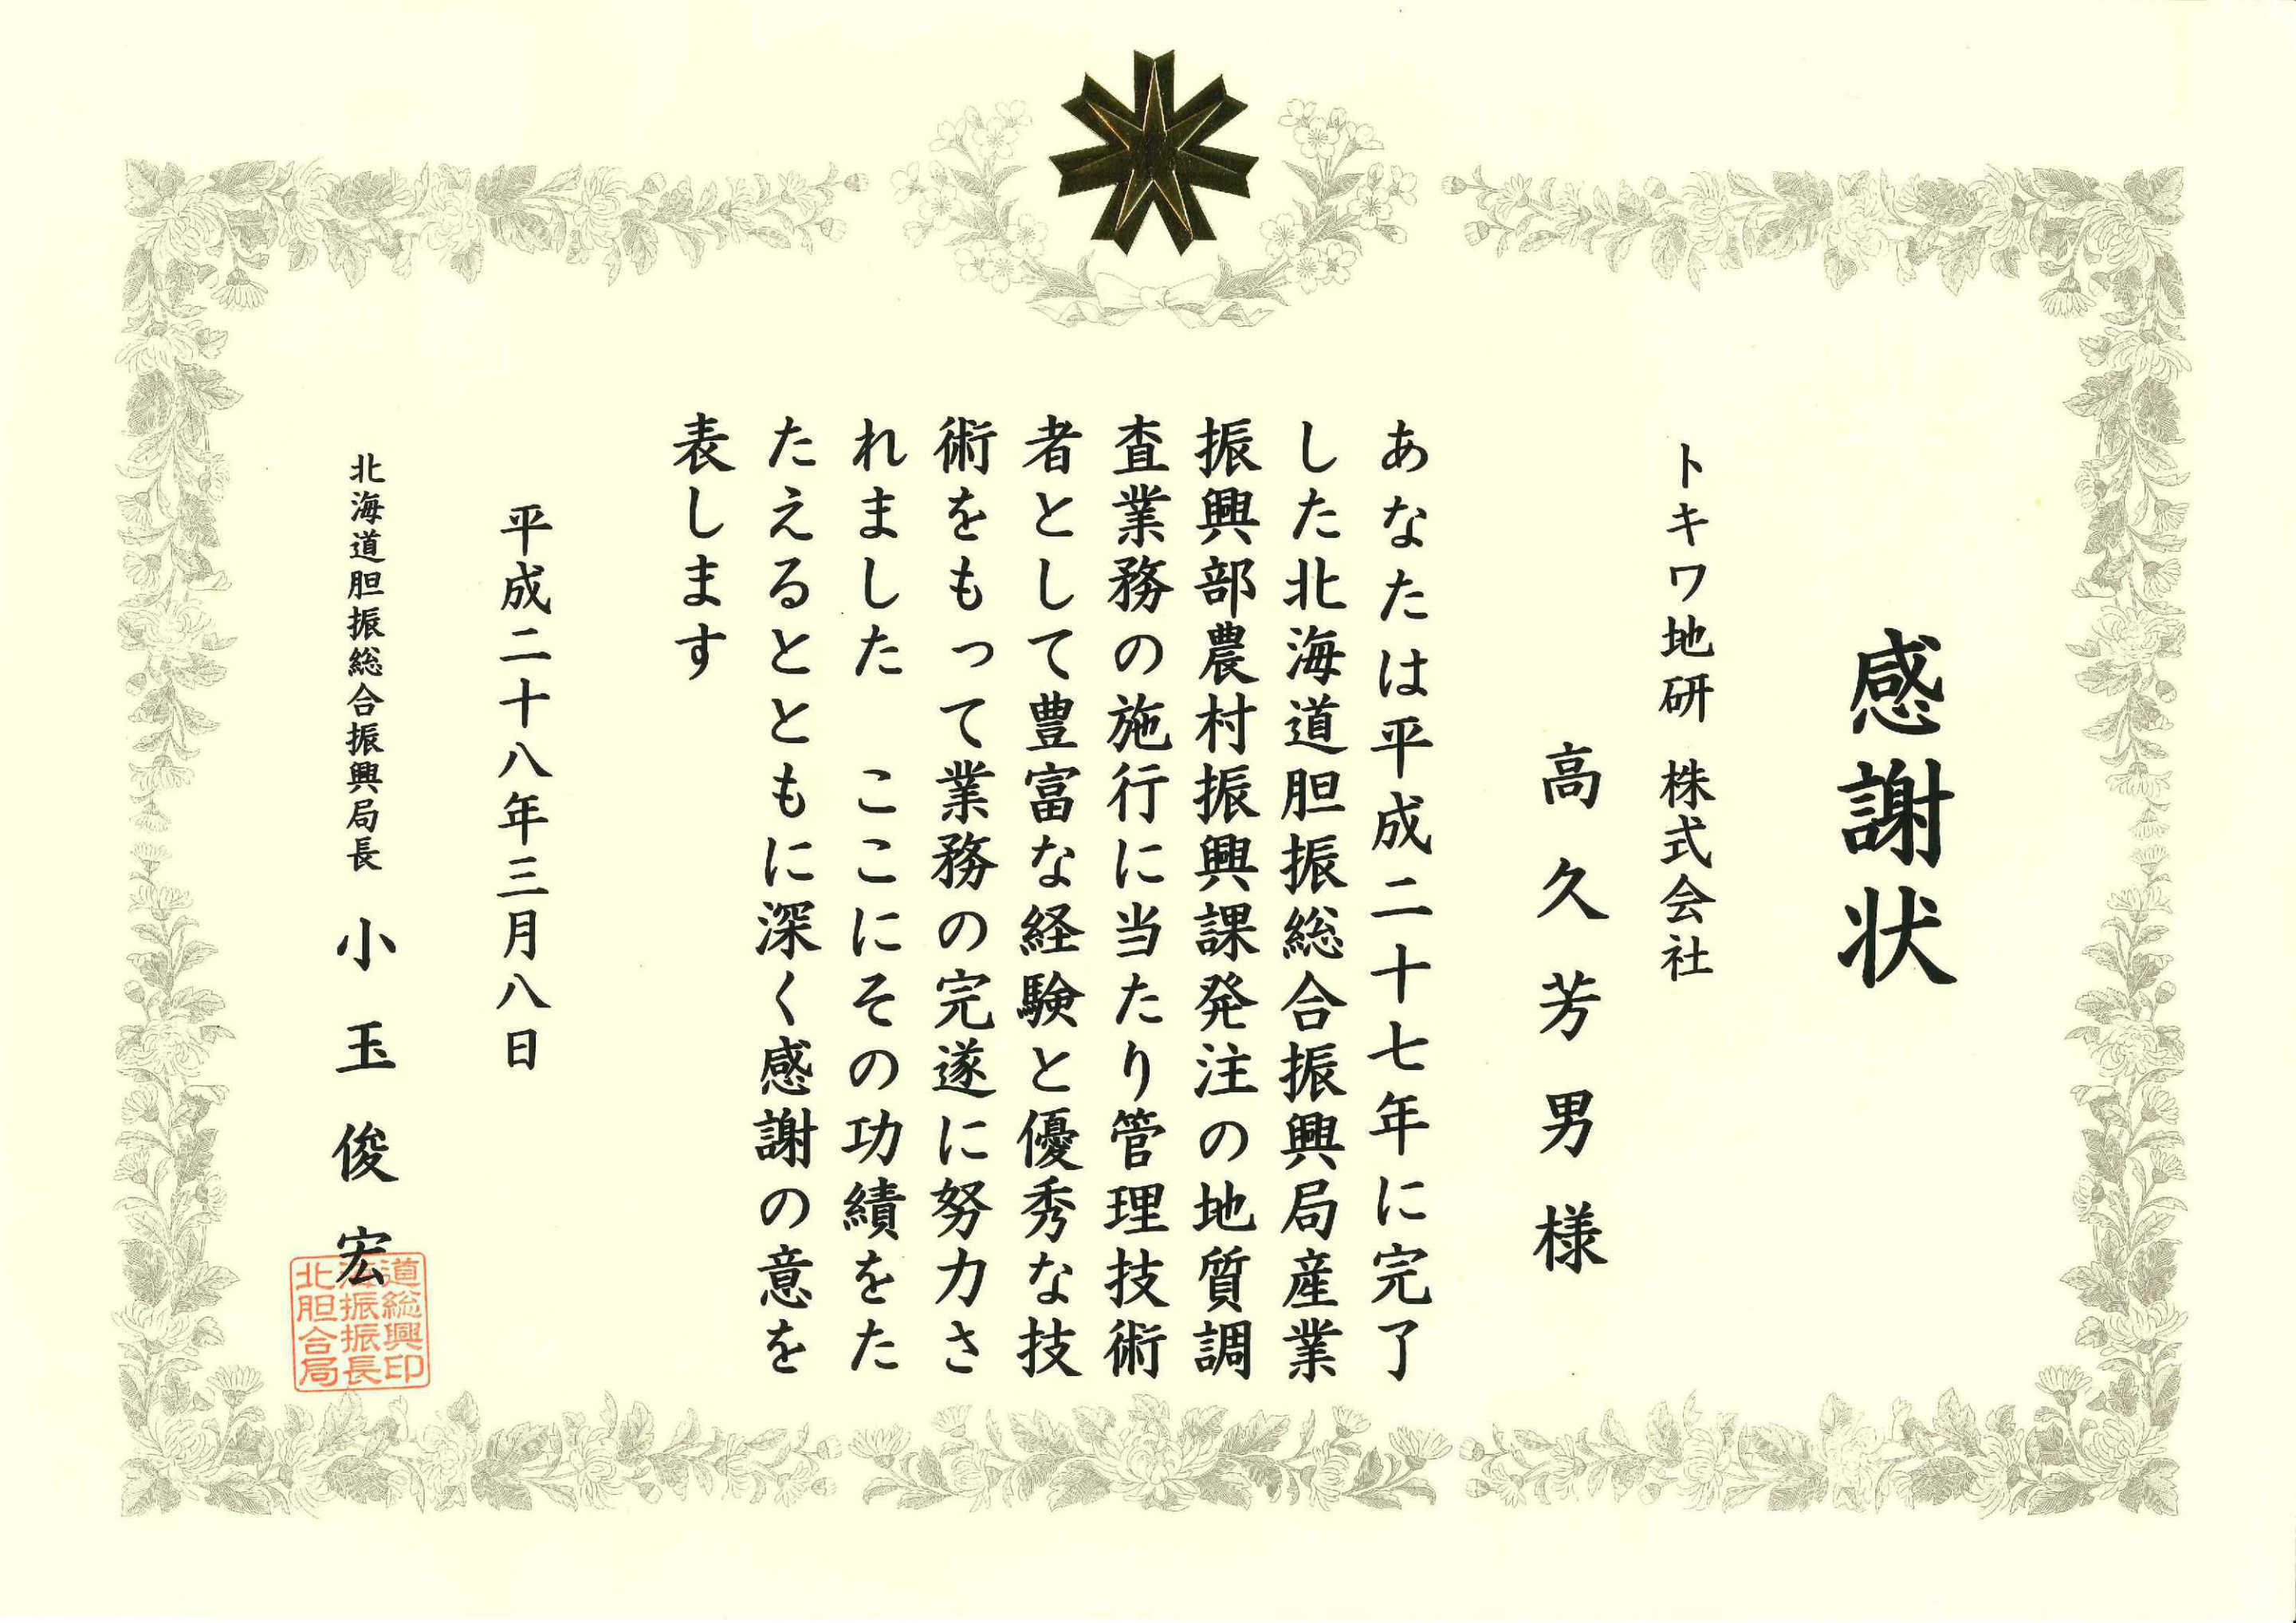 感謝状
トキワ地研 株式会社
高久芳男様
あなたは平成二十七年に完了
した北海道胆振総合振興局産業
振興部農村振興課発注の地質調
査業務の施行に当たり管理技術
者として豊富な経験と優秀な技
術をもって業務の完遂に努力さ
れました　ここにその功績をた
たえるとともに深く感謝の意を
表します
平成二十八年三月八日
北海道胆振総合振興局長 小玉俊宏
北海道
胆振総
合振興
局長印